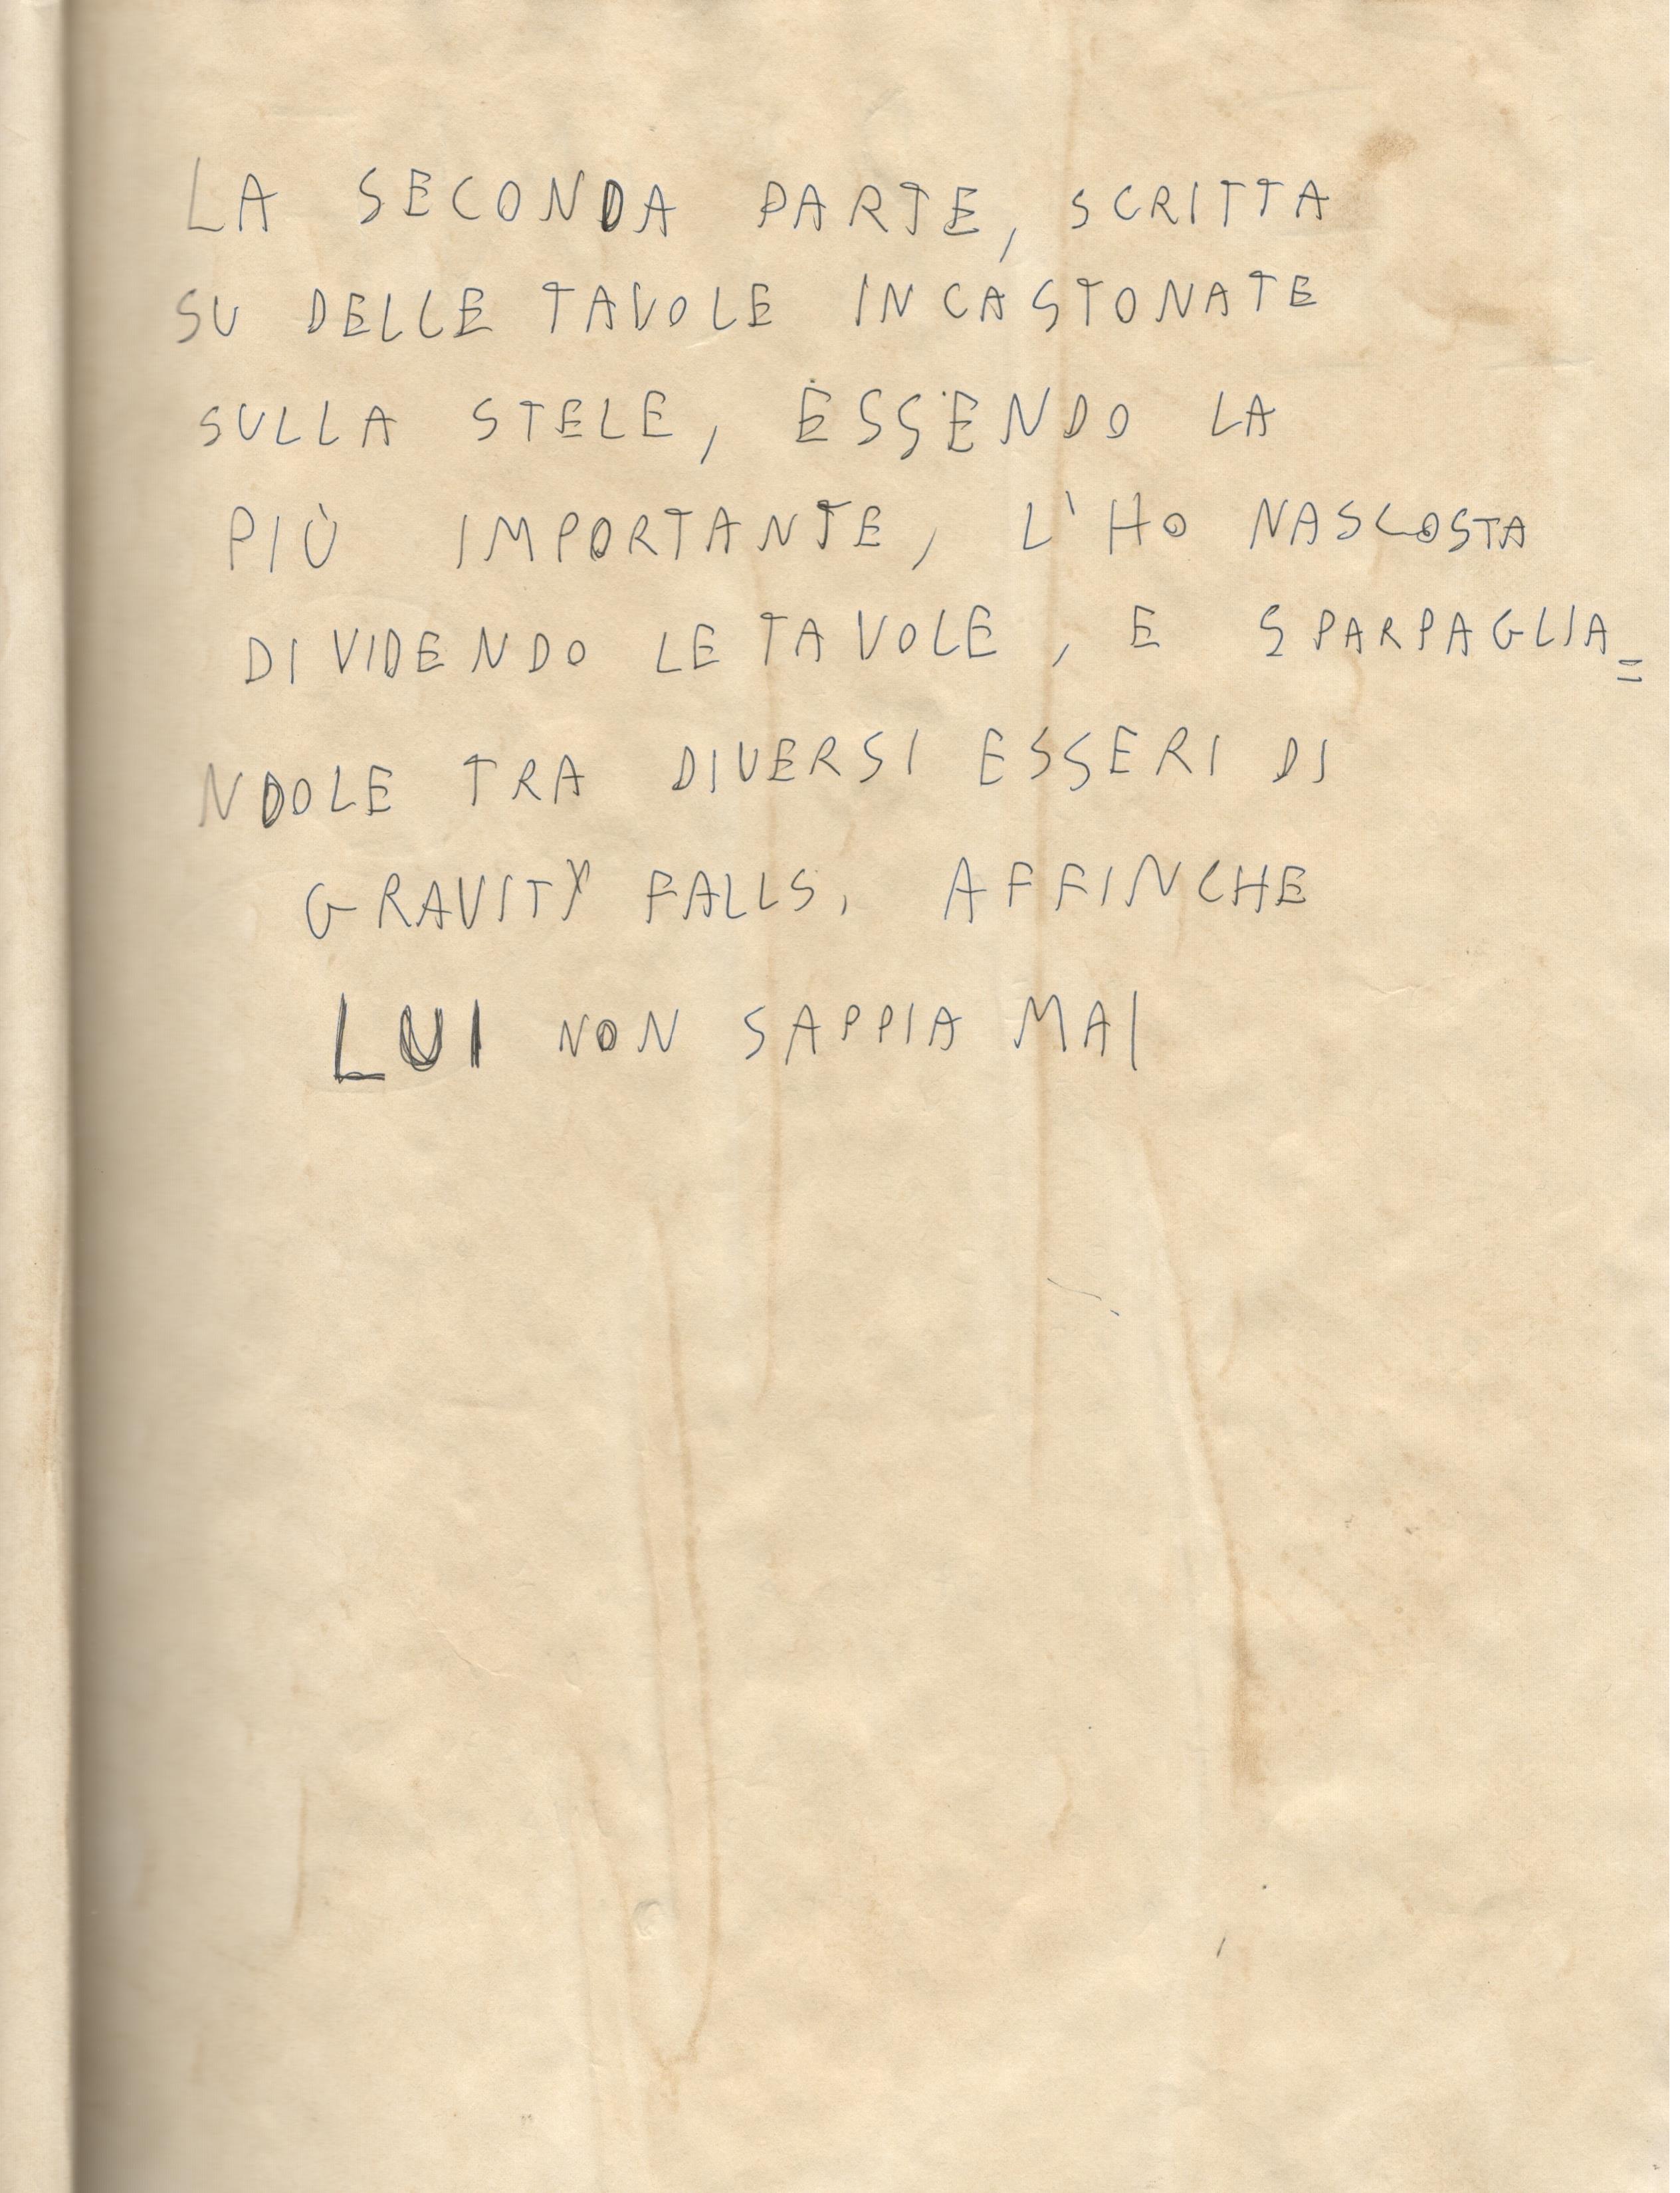 LA SECONDA PARTE, SCRITTA
SU DELLE TAVOLE INCASTONATE
SULLA STELE, ESSENDO LA
PIÙ IMPORTANTE, L'HO NASCOSTA
DIVIDENDO LE TAVOLE, E SPARPAGLIA=
NDOLE TRA DIVERSI ESSERI DI
GRAVITY FALLS, AFFINCHE
LUI NON SAPPIA MAI